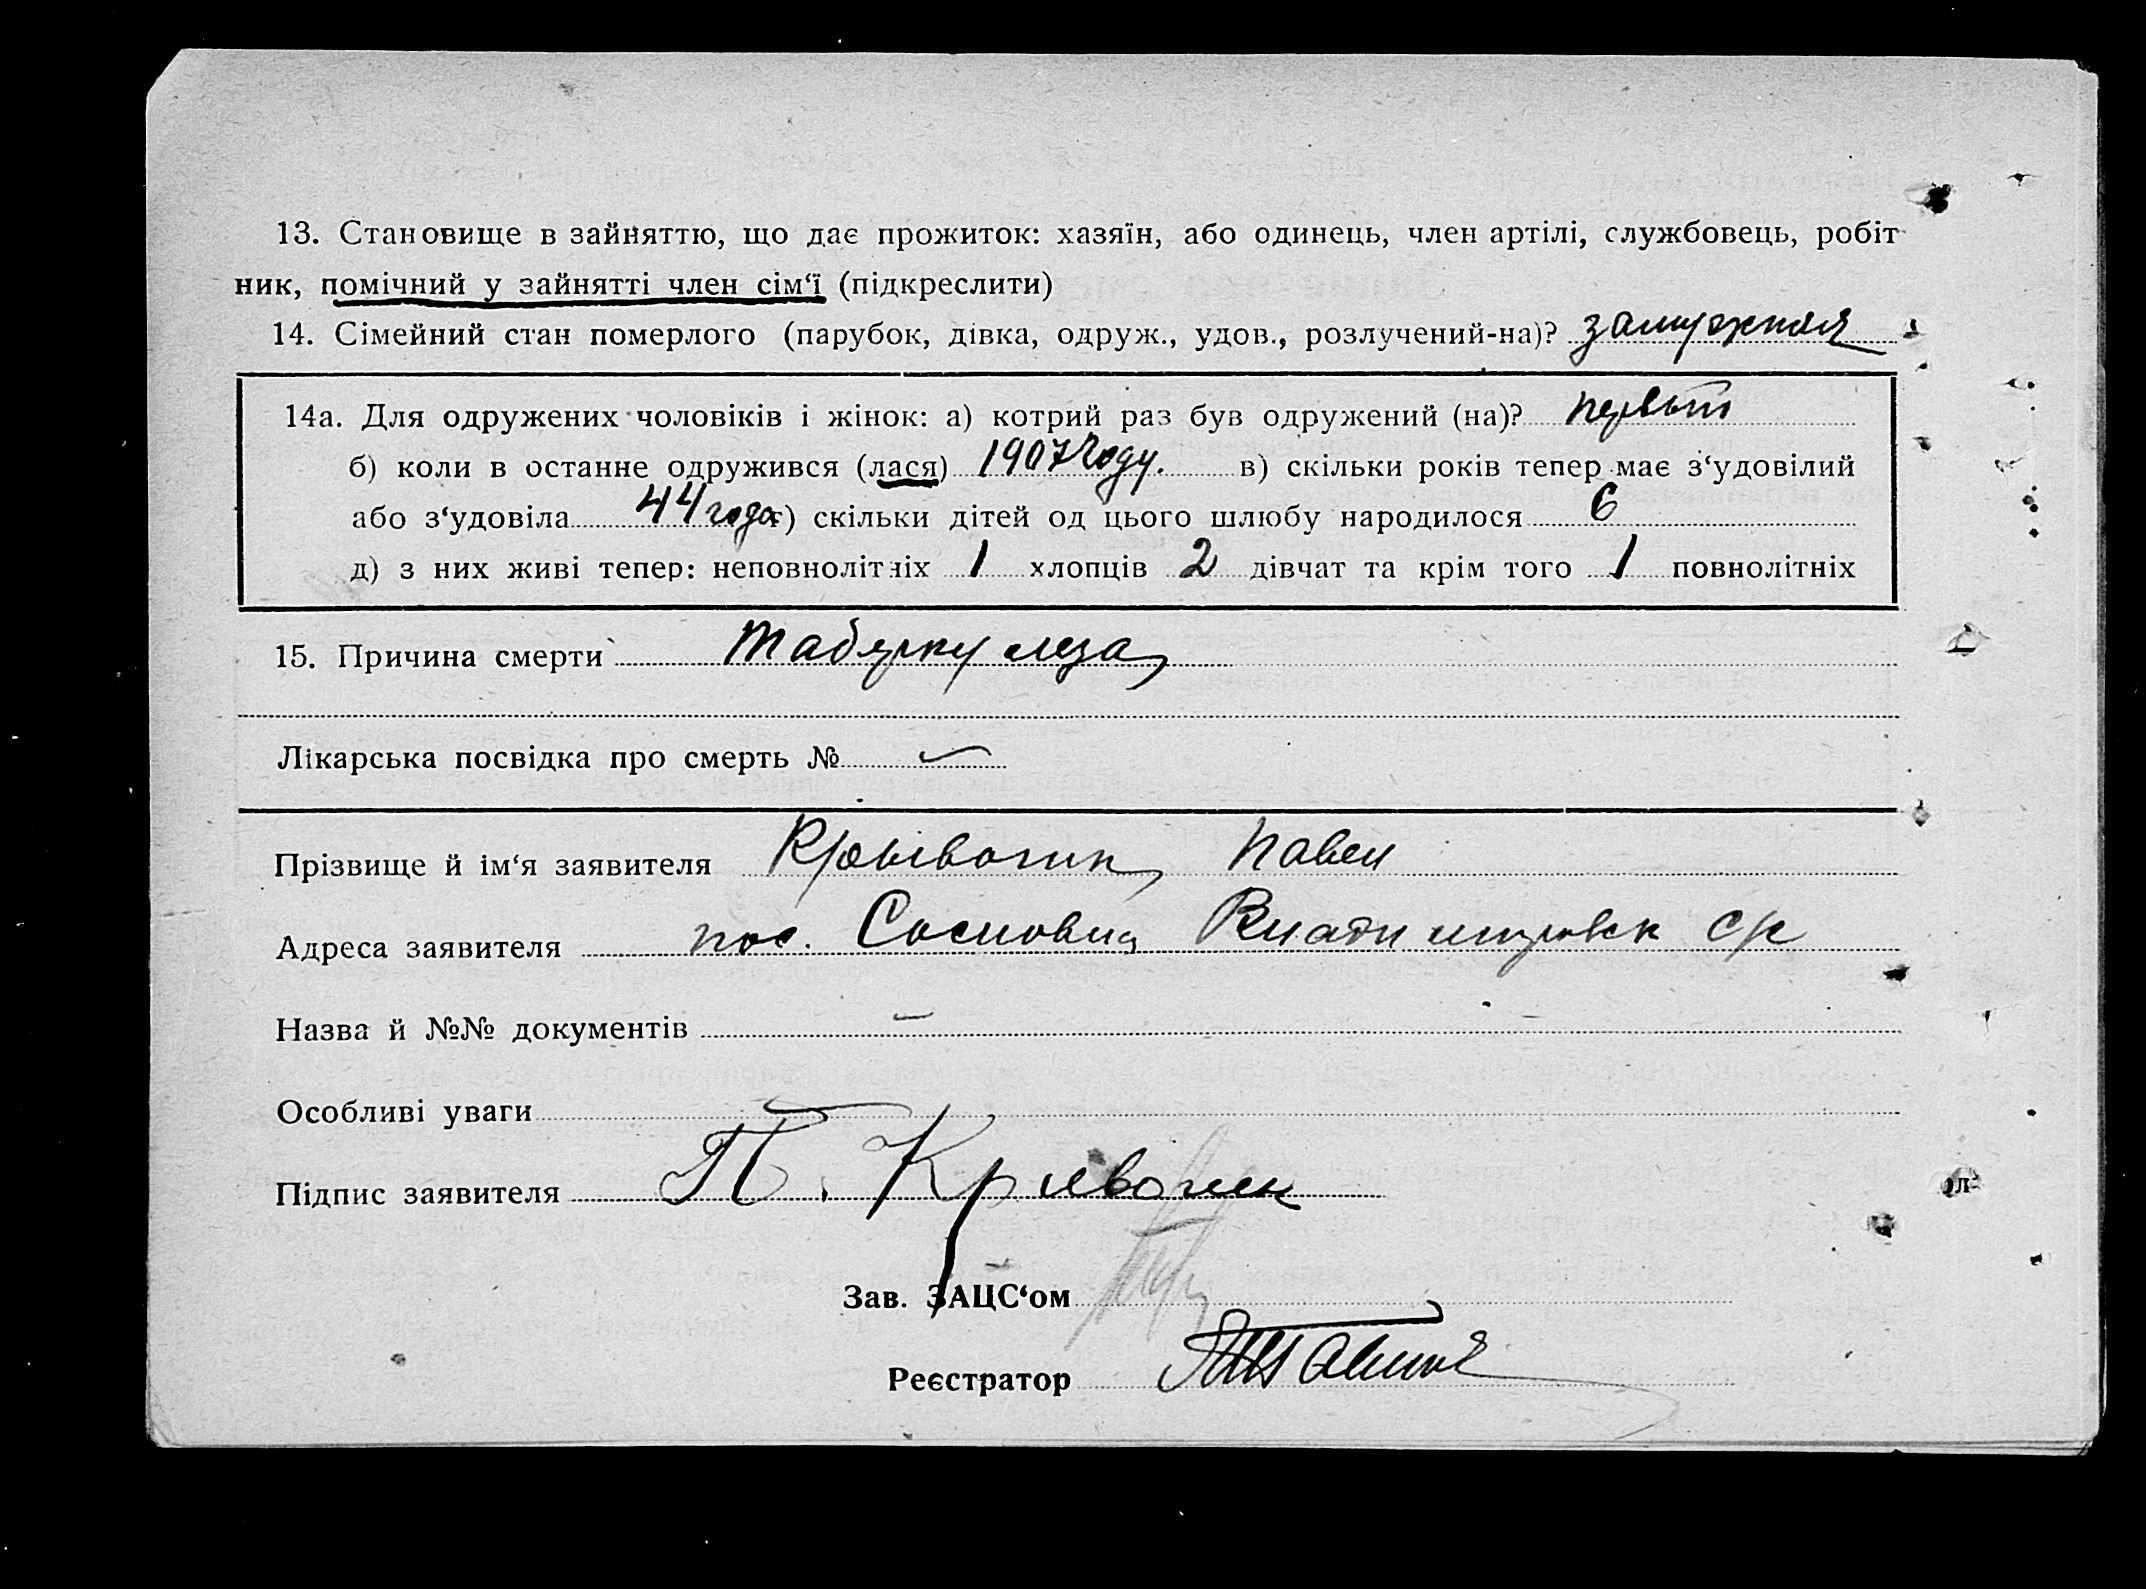 13. Становище в зайняттю, що дає прожиток: хазяїн, або одинець, член артілі, службовець, робіт-
ник, помічний у зайнятті член сім‘ї (підкреслити)
14. Сімейний стан померлого (парубок, дівка, одруж., удов., розлучений-на)? замужняя
14а. Для одружених чоловіків і жінок: а) котрий раз був одружений (на)? первый
б) коли в останне одружився (лася) 1907 году. в) скільки років тепер має з‘удовілий
або з‘удовіла 44 года г) скільки дітей од цього шлюбу народилося 6
д) з них живі тепер: неповнолітніх 1 хлопців 2 дівчат та крім того 1 повнолітніх
15. Причина смерти Таберкулеза
Лікарська посвідка про смерть №
Прізвище й ім‘я заявителя Павел
Адреса заявителя пос. Сосновка Владимировск с/с
Назва й №№ документів –
Особливі уваги
Підпис заявителя П.
Зав. ЗАЦС‘ом
Реєстратор